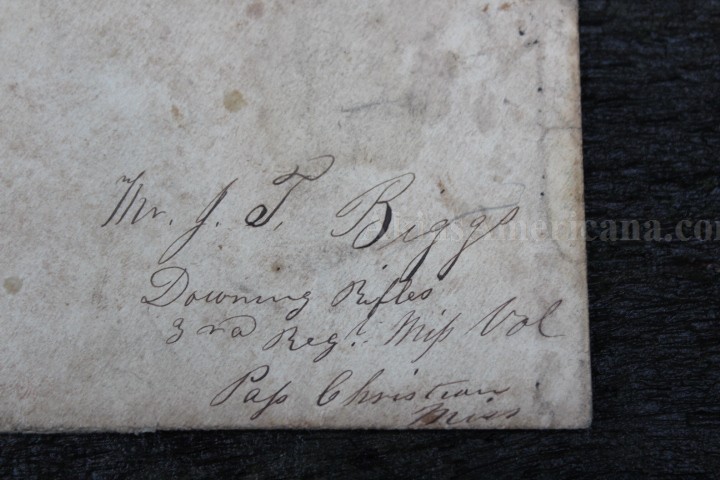 Mr. J. T. Biggs
Americana.com
Downing Rifles
3rd Regt. Miss Vol
Pass Christian
Miss